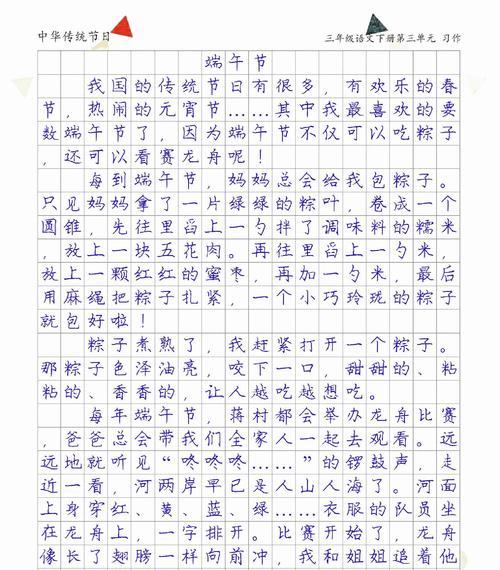 中华传统节日
三年级语文下册第三单元 习作
端午节
我国的传统节日有很多，有欢乐的春
节，热闹的元宵节……其中我最喜欢的要
数端午节了，因为端午节不仅可以吃粽子
，还可以看赛龙舟呢！
每到端午节，妈妈总会给我包粽子。
只见妈妈拿了一片绿绿的粽叶，卷成一个
圆锥，先往里舀上一勺拌了调味料的糯米
，放上一块五花肉。再往里舀上一勺米，
放上一颗红红的蜜枣，再加一勺米，最后
用麻绳把粽子扎紧，一个小巧玲珑的粽子
就包好啦！
粽子煮熟了，我赶紧打开一个粽子。
那粽子色泽油亮，咬下一口，甜甜的、粘
粘的、香香的，让人越吃越想吃。
每年端午节，蒋村都会举办龙舟比赛
，爸爸总会带我们全家人一起去观看。远
远地就听见“咚咚咚……”的锣鼓声，走
近一看，河两岸早已是人山人海了。河面
上身穿红、黄、蓝、绿……衣服的队员坐
在龙舟上，一字排开。比赛开始了，龙舟
像长了翅膀一样向前冲，我和姐姐追着他